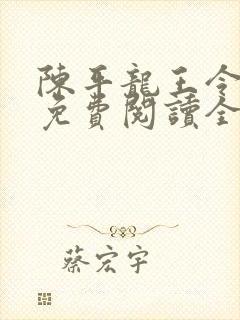 陳平龍王令
免費閱讀全
蔡宏宇